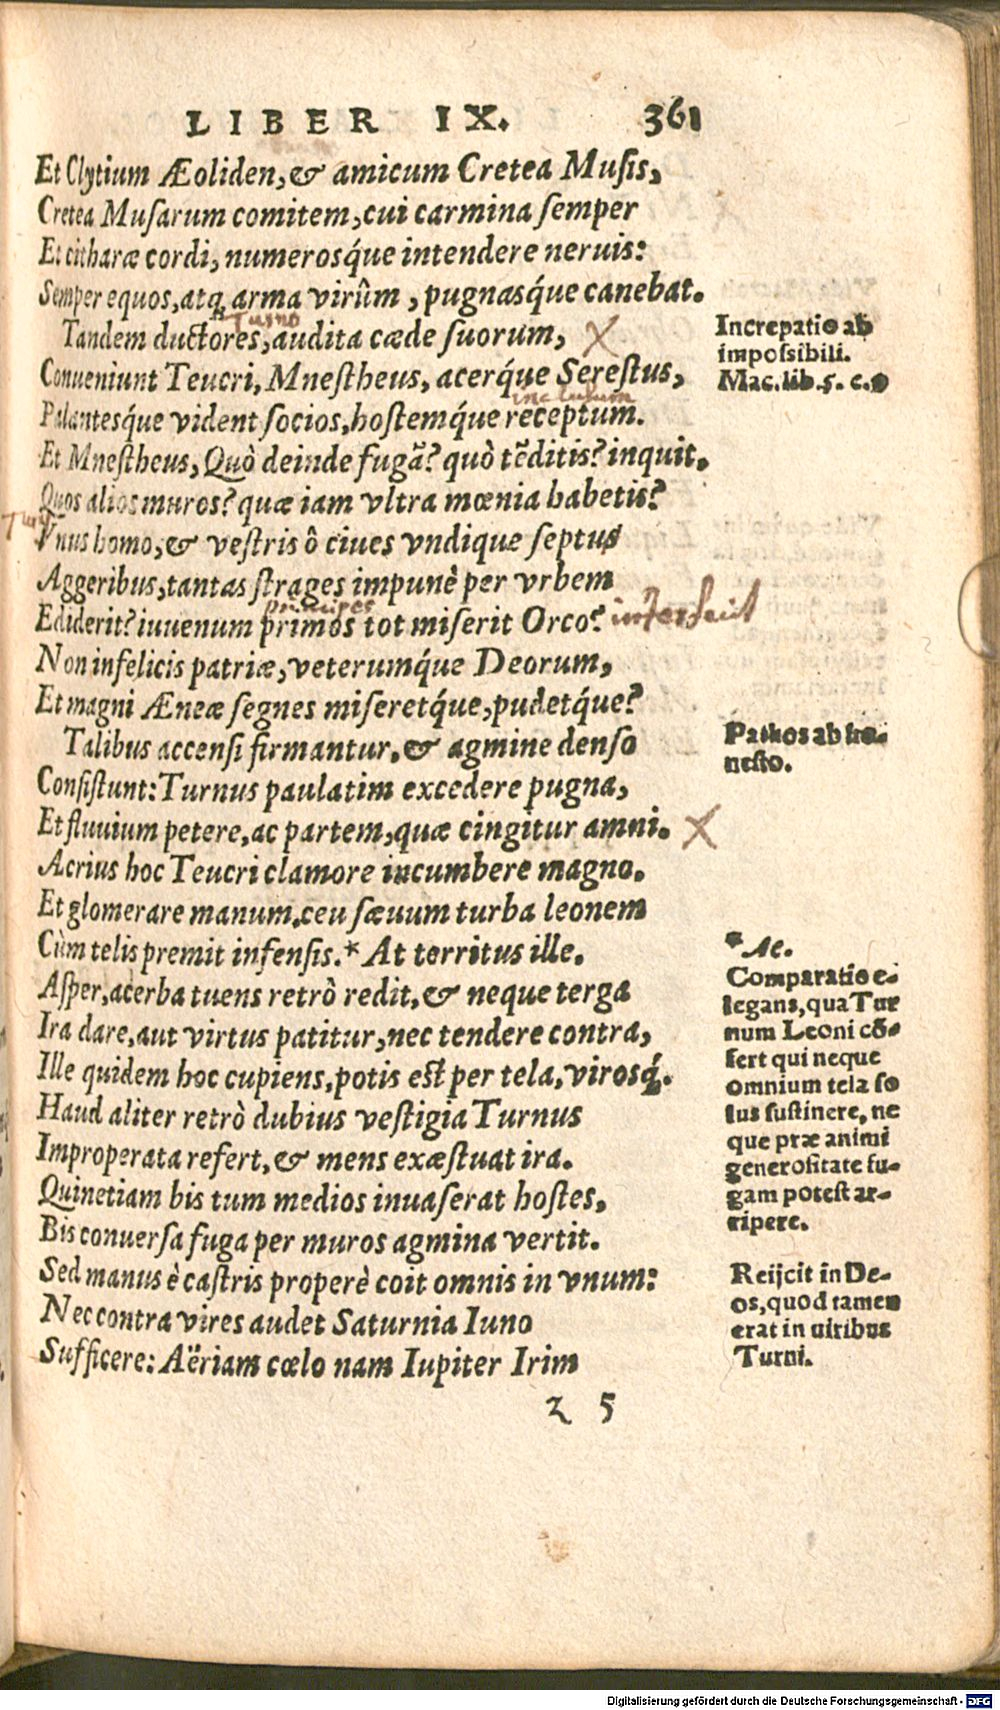 LIBER IX. 361
Et Clytium Æoliden, & amicum Cretea Musis,
Cretea Musarum comitem, cui carmina semper
Et citharæ cordi, numerosq́ue intendere neruis:
Semper equos, atq; arma virûm, pugnasq́ue canebat.
Turno
Tandem ductores, audita cæde suorum, X
Increpatio ab
impossibili.
Mac. lib. 5. c. 9
Conueniunt Teucri, Mnestheus, acerq́ue Serestus,
inclusum
Palantesq́ue vident socios, hostemq́ue receptum.
Et Mnestheus, Quò deinde fugã? quò tẽditis? inquit,
Quos alios muros? quæ iam vltra mœnia habetis?
Vnus homo, & vestris ô ciues vndique septus
Aggeribus, tantas strages impunè per vrbem
principes
Ediderit? iuuenum primos tot miserit Orco? interfecit
Non infelicis patriæ, veterumq́ue Deorum,
Et magni Æneæ segnes miseretq́ue, pudetq́ue?
Talibus accensi firmantur, & agmine denso
Pathos ab ho-
nesto.
Consistunt: Turnus paulatim excedere pugna,
Et fluuium petere, ac partem, quæ cingitur amni. X
Acrius hoc Teucri clamore incumbere magno.
Et glomerare manum. ceu sæuum turba leonem
Cùm telis premit infensis. * At territus ille.
* Ac.
Comparatio e-
legans, qua Tur
num Leoni cõ-
fert qui neque
omnium tela so
lus sustinere, ne
que præ animi
generositate fu-
gam potest ar-
ripere.
Asper, acerba tuens retrò redit, & neque terga
Ira dare, aut virtus patitur, nec tendere contra,
Ille quidem hoc cupiens, potis est per tela, virosq́;.
Haud aliter retrò dubius vestigia Turnus
Improperata refert, & mens exæstuat ira.
Quinetiam bis tum medios inuaserat hostes,
Bis conuersa fuga per muros agmina vertit.
Sed manus è castris properè coit omnis in vnum:
Reijcit in De-
os, quod tamen
erat in uiribus
Turni.
Nec contra vires audet Saturnia Iuno
Sufficere: Aëriam cœlo nam Iupiter Irim
z 5
Digitalisierung gefördert durch die Deutsche Forschungsgemeinschaft - DFG